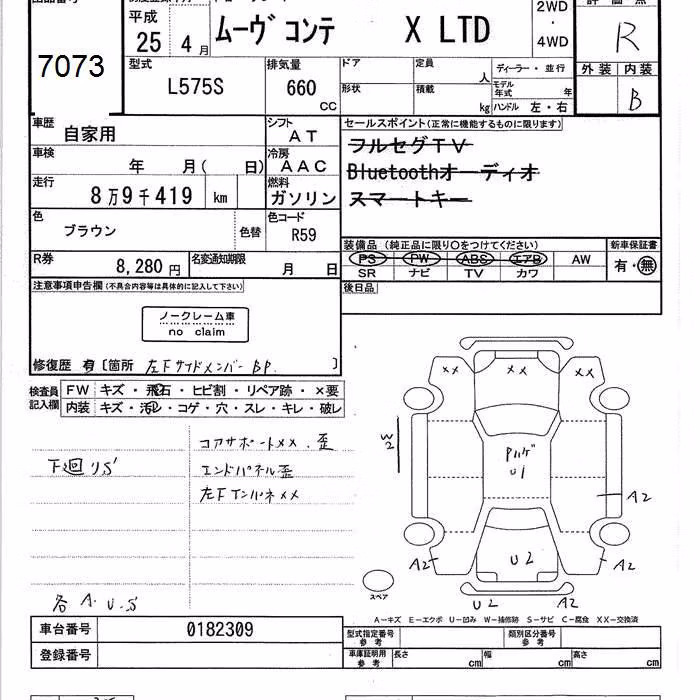 7073
平成
25 4 月
ムーヴ コンテ X LTD
2WD
・
4WD
R
型式
L575S
排気量
660
CC
ドア
定員
人
ディーラー・並行
モデル
年式
年
外装 内装
形状
積載
kg
ハンドル 左・右
B
車歴
自家用
シフト
AT
セールスポイント(正常に機能するものに限ります)
フルセグTV
車検
年 月( 日)
冷房
AAC
Bluetoothオーディオ
走行
8万9千419 km
燃料
ガソリン
スマートキー
色
ブラウン
色替
色コード
R59
装備品 (純正品に限り○をつけてください)
新車保証書
PS PW ABS エアB AW
有・無
SR ナビ TV カワ
R券
8,280 円
名変通知期限
月 日
後日品
注意事項申告欄(不具合内容等は具体的に記入して下さい)
ノークレーム車
no claim
修復歴 有 [箇所 左Fサイドメンバー BP. ]
検査員
記入欄
FW キズ・飛石・ヒビ割・リペア跡・×要
内装 キズ・汚レ・コゲ・穴・スレ・キレ・破レ
コアサポートXX.歪
下廻りS
エンドパネル歪
左Fインパネ XX
各A.U.S
XX XX
W2
U1
A2
A2 U2 A2
U2 A2
スペア
A-キズ E-エクボ U-凹み W-補修跡 S-サビ C-腐食 XX-交換済
車台番号 0182309
登録番号
型式指定番号
参考
類別区分番号
参考
車庫証明用
参考
長さ cm 幅 cm 高さ cm